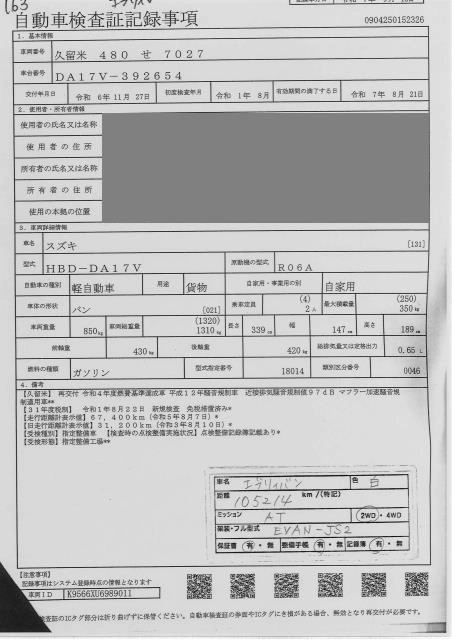 163 エブリイバン
自動車検査証記録事項
0904250152326
1. 基本情報
車両番号 久留米 480 せ 7027
車台番号 DA17V-392654
交付年月日 令和 6年11月27日 初度検査年月 令和 1年 8月 有効期間の満了する日 令和 7年 8月21日
2. 使用者・所有者情報
使用者の氏名又は名称
使用者の住所
所有者の氏名又は名称
所有者の住所
使用の本拠の位置
3. 車両詳細情報
車名 スズキ [131]
型式 HBD-DA17V 原動機の型式 R06A
自動車の種別 軽自動車 用途 貨物 自家用・事業用の別 自家用
車体の形状 バン [021] 乗車定員 (4) 2人 最大積載量 (250) 350kg
車両重量 850kg 車両総重量 (1320) 1310kg 長さ 339cm 幅 147cm 高さ 189cm
前軸重 430kg 後軸重 420kg 総排気量又は定格出力 0.65 L
燃料の種類 ガソリン 型式指定番号 18014 類別区分番号 0046
4. 備考
【久留米】 再交付 令和4年度燃費基準達成車 平成12年騒音規制車 近接排気騒音規制値97dB マフラー加速騒音規
制適用車**
【31年度税別】 令和1年8月22日 新規検査 免税措置済み*
【走行距離計表示値】67,400km(令和5年8月7日)*
【旧走行距離計表示値】31,200km(令和3年8月10日)*
【受検種別】指定整備車 【検査時の点検整備実施状況】点検整備記録簿記載あり*
【受検形態】指定整備工場**
車名 エブリィバン 色 白
距離 105214 km/(特記)
ミッション AT 2WD・4WD
架装・フル型式 EVAN-JS2
保証書 有・無 整備手帳 有・無 記録簿 有・無
【注意事項】
記録事項はシステム登録時点の情報となります
車両ID K9566XU6989011
検査証のICタグ部分は折り曲げずに保管ください。自動車検査証の券面やICタグにき損がある場合、無効となり再交付が必要です。